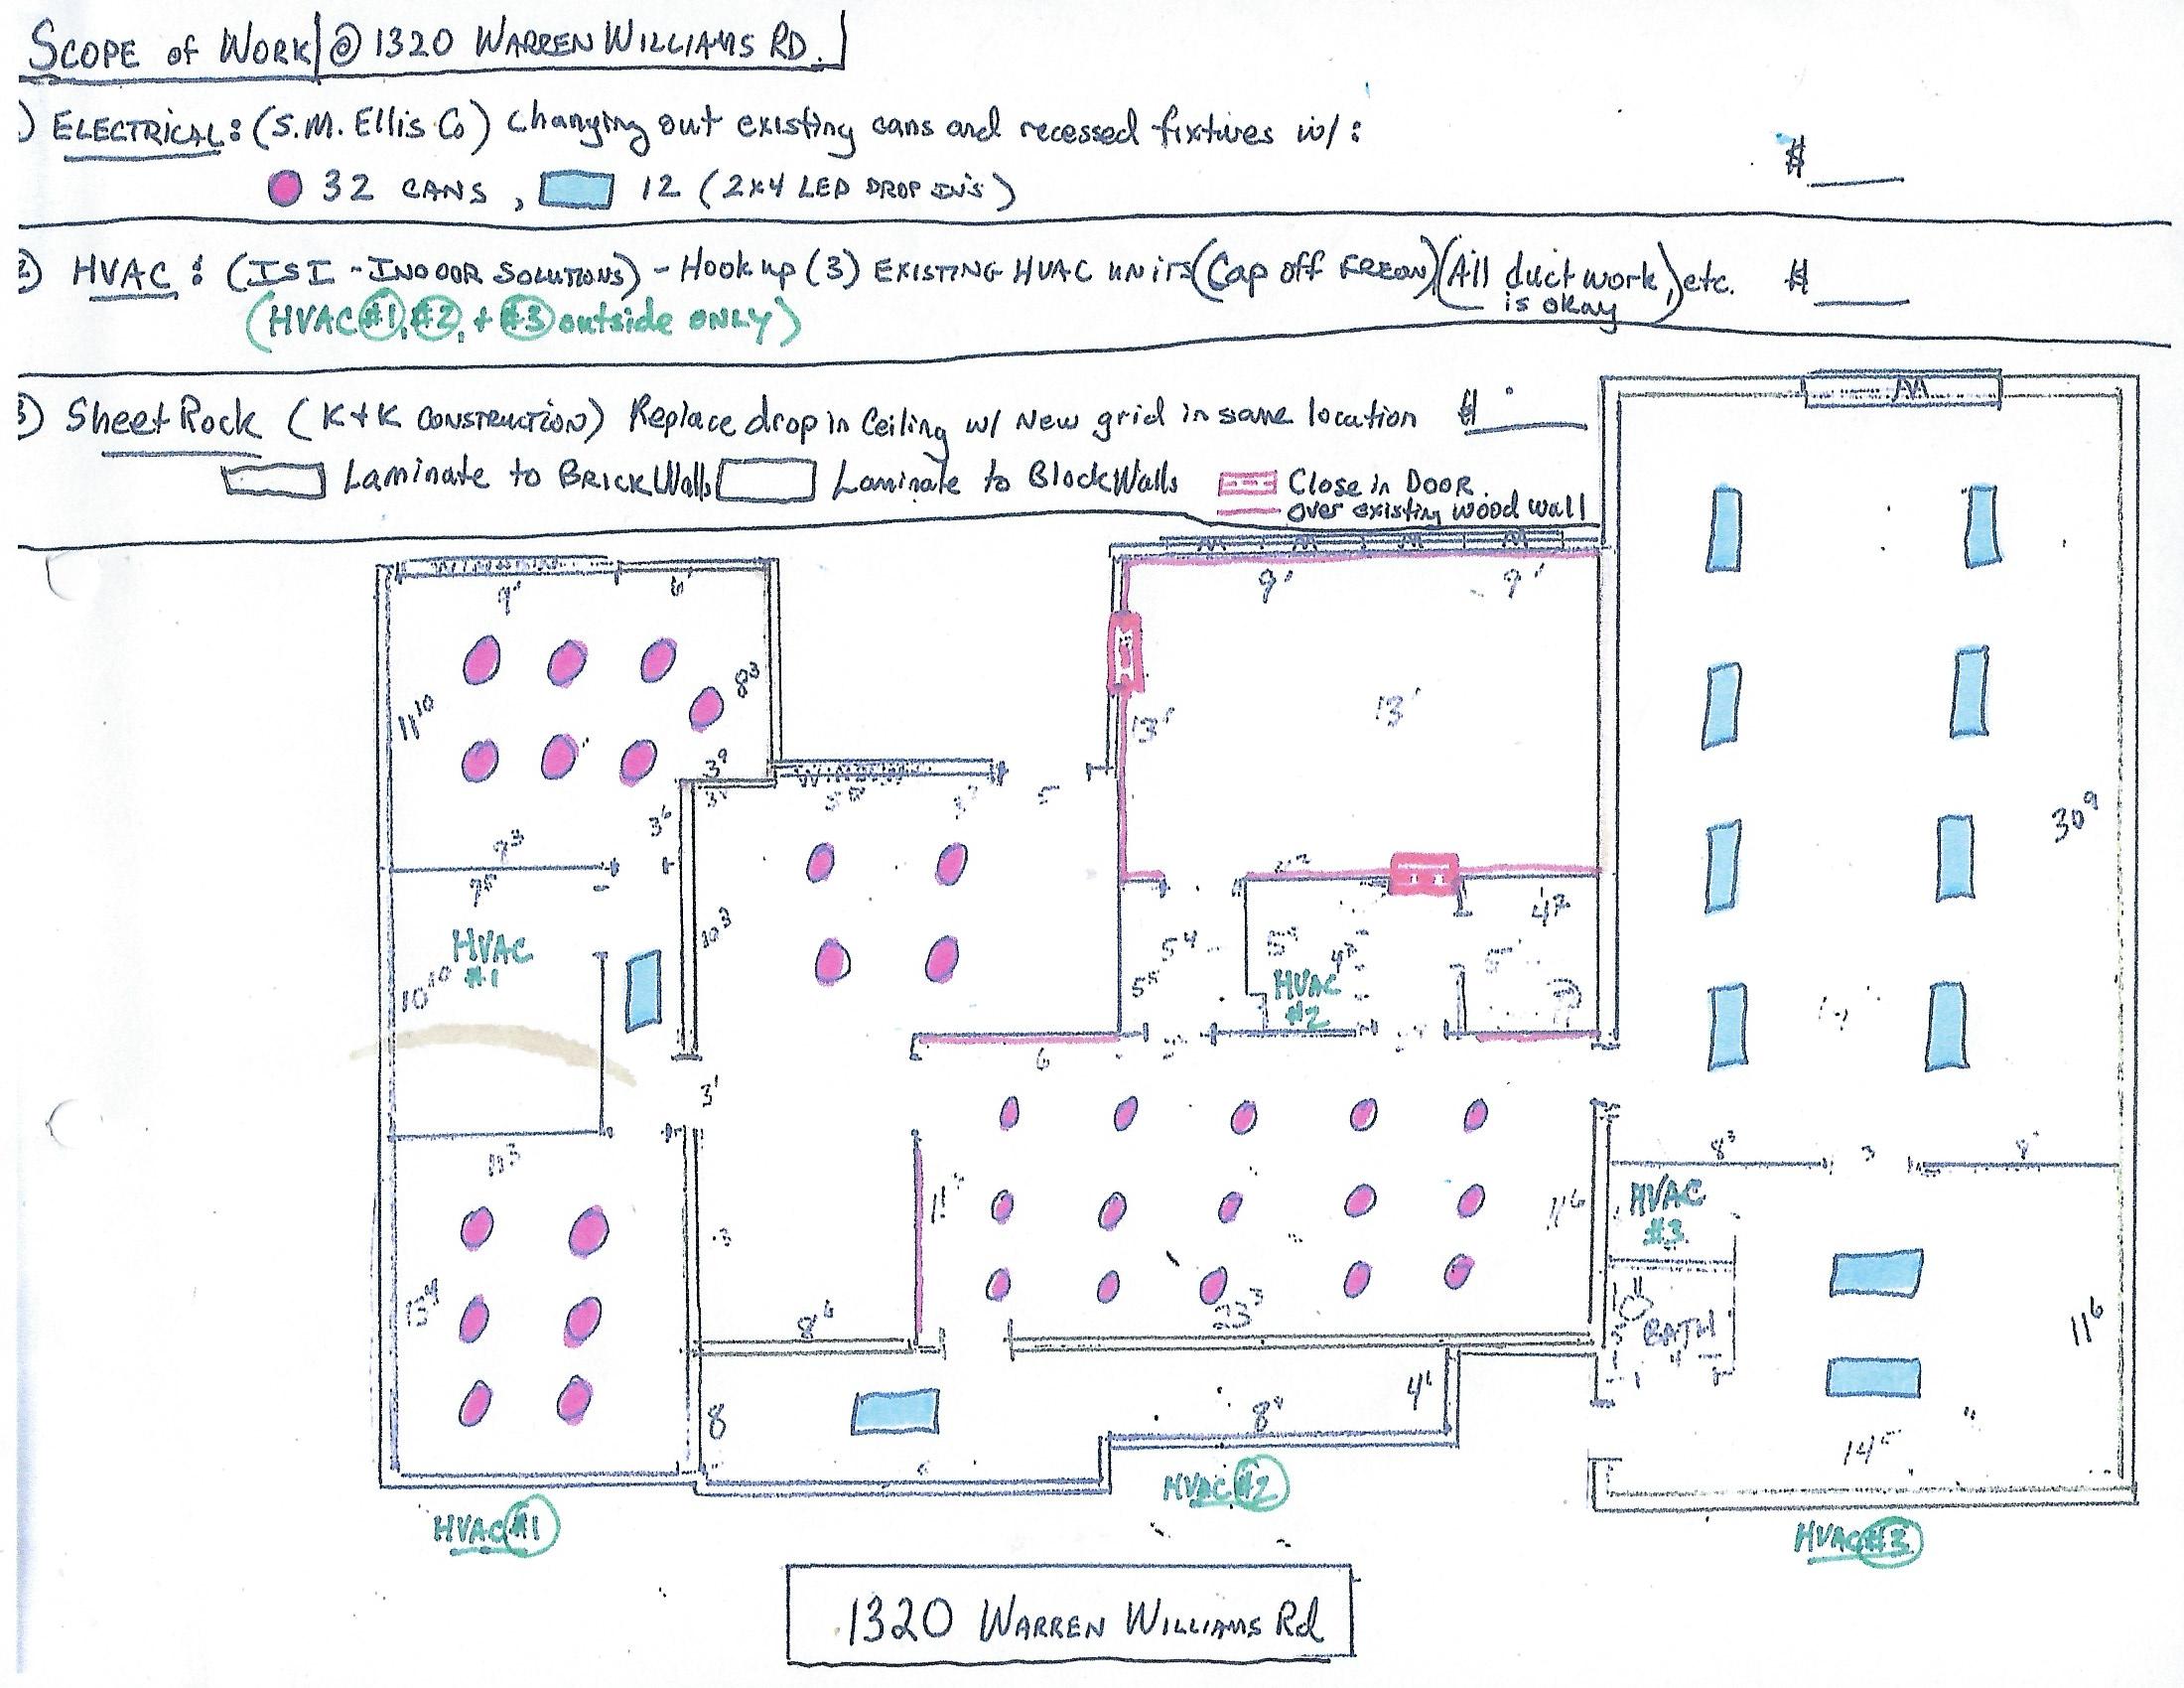 SCOPE of WORK @ 1320 WARREN WILLIAMS RD.
) ELECTRICAL: (S.M. Ellis Co) Changing out existing cans and recessed fixtures w/: $
32 CANS, 12 (2x4 LED DROP IN'S)
2) HVAC: (ISI - INDOOR SOLUTIONS) - Hook up (3) EXISTING HVAC units (Cap off FREON) (All duct work, is okay) etc. $
(HVAC #1, #2, + #3 outside ONLY)
3) Sheet Rock (K+K CONSTRUCTION) Replace drop in Ceiling w/ New grid in same location $
Laminate to BRICK Walls Laminate to Block Walls Close in DOOR.
over existing wood wall
9' 9'
8³
11¹⁰
13' 13'
3⁹
5
3⁶
30⁹
9³
HVAC
#1
10¹⁰
10³
4²
5⁴
5⁵
HVAC
#2
6
3'
8³ 3 8'
11³
HVAC
#3
11⁶
13⁴
23³
BATH
11⁶
8⁶
8
8⁰
4'
14⁵
HVAC #1
HVAC #2
HVAC #3
1320 WARREN WILLIAMS Rd